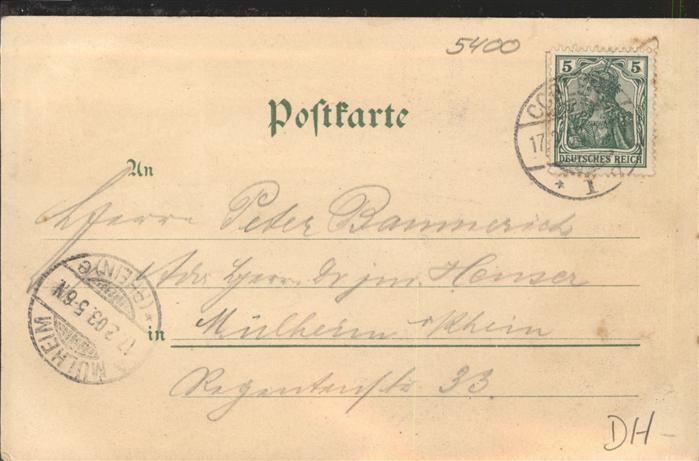 5400
5 5
DEUTSCHES REICH
17.
* 1
Postkarte
An
Herrn Peter Bammerich
Adr. Herrn Dr jur. Heuser
in Mülheim a/Rhein
Regentenstr. 33
MÜLHEIM
17.2.03. 5-6N
* (RHEIN) c
DH-